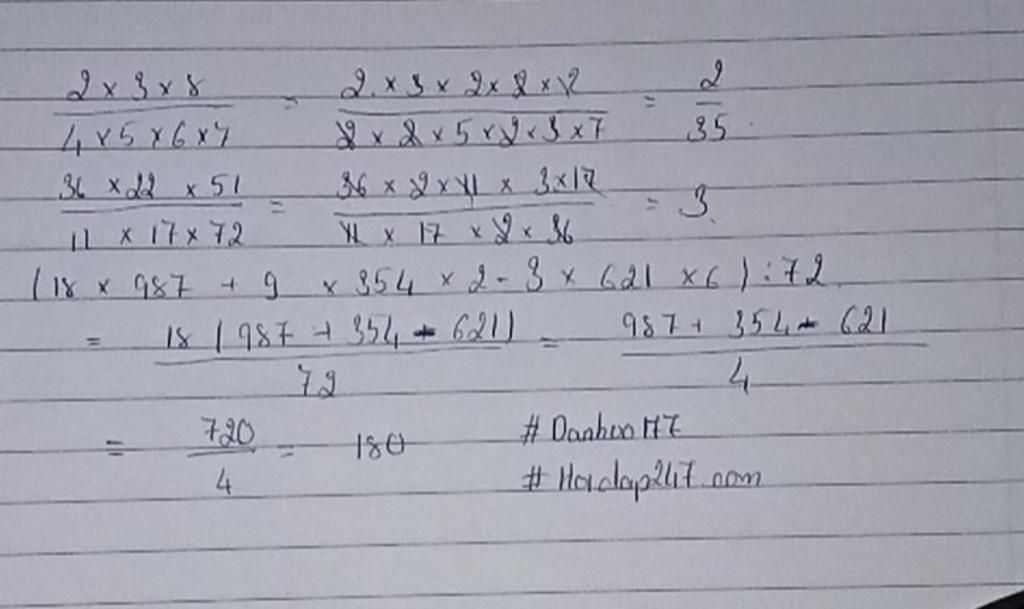 2 × 3 × 8 / 4 × 5 × 6 × 7 = 2 × 3 × 2 × 2 × 2 / 2 × 2 × 5 × 2 × 3 × 7 = 2 / 35
36 × 22 × 51 / 11 × 17 × 72 = 36 × 2 × 11 × 3 × 17 / 11 × 17 × 2 × 36 = 3
(18 × 987 + 9 × 354 × 2 - 3 × 621 × 6) : 72
= 18 (987 + 354 - 621) / 72 = 987 + 354 - 621 / 4
= 720 / 4 = 180
#
# Hoidap247.com